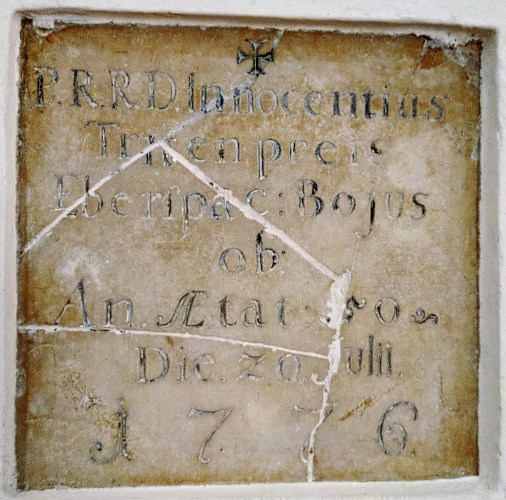 P.R.R.D. Innocentius
Tritenpreis
Eberſpac: Bojus
ob:
An. Ætat: 50
Die. 20. Julii.
1776.